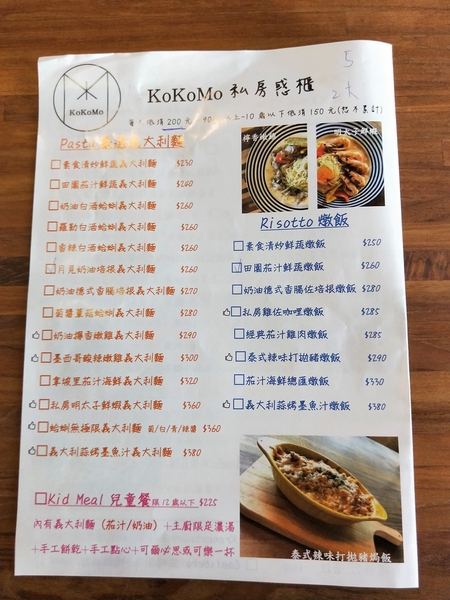 KoKoMo
KoKoMo 私房惑櫃
5
2大
200元
10歲以下低消150元(恕不累計)
Pasta 大利麵
素食清炒鮮蔬義大利麵 $250
田園茄汁鮮蔬義大利麵 $260
奶油白酒蛤蜊義大利麵 $260
羅勒白酒蛤蜊義大利麵 $260
香辣白酒蛤蜊義大利麵 $260
月見奶油培根義大利麵 $260
奶油德式香腸培根義大利麵 $270
菌醬蕈菇蛤蜊義大利麵 $280
奶油檸香嫩雞義大利麵 $290
墨西哥酸辣嫩雞義大利麵 $300
拿坡里茄汁海鮮義大利麵 $320
私房明太子鮮蝦義大利麵 $360
蛤蜊無極限義大利麵 菊/白/青/辣醬 $360
義大利蒜烤墨魚汁義大利麵 $380
Risotto 燉飯
素食清炒鮮蔬燉飯 $250
田園茄汁鮮蔬燉飯 $260
奶油德式香腸佐培根燉飯 $280
私房雞佐咖哩燉飯 $285
經典茄汁雞肉燉飯 $285
泰式辣味打拋豬燉飯 $290
茄汁海鮮總匯燉飯 $330
義大利蒜烤墨魚汁燉飯 $380
Kid Meal 兒童餐 限12歲以下 $225
內有義大利麵 (茄汁/奶油) +主廚限定濃湯
+手工餅乾+手工點心+可爾必思或可樂一杯
泰式辣味打拋豬焗飯